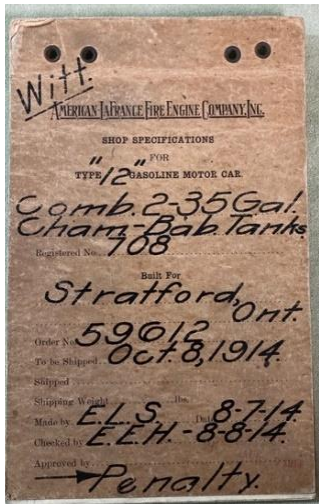 Witt.
AMERICAN LAFRANCE FIRE ENGINE COMPANY, INC.
SHOP SPECIFICATIONS
FOR
TYPE "12" GASOLINE MOTOR CAR.
Comb. 2-35 Gal.
Cham-Bab. Tanks
Registered No. 708
Built For
Stratford,
Ont.
Order No. 59612
To be Shipped Oct. 8, 1914.
Shipped
Shipping Weight lbs.
Made by E.L.S. Date 8-7-14.
Checked by E.E.H. - 8-8-14.
Approved by 191
Penalty.